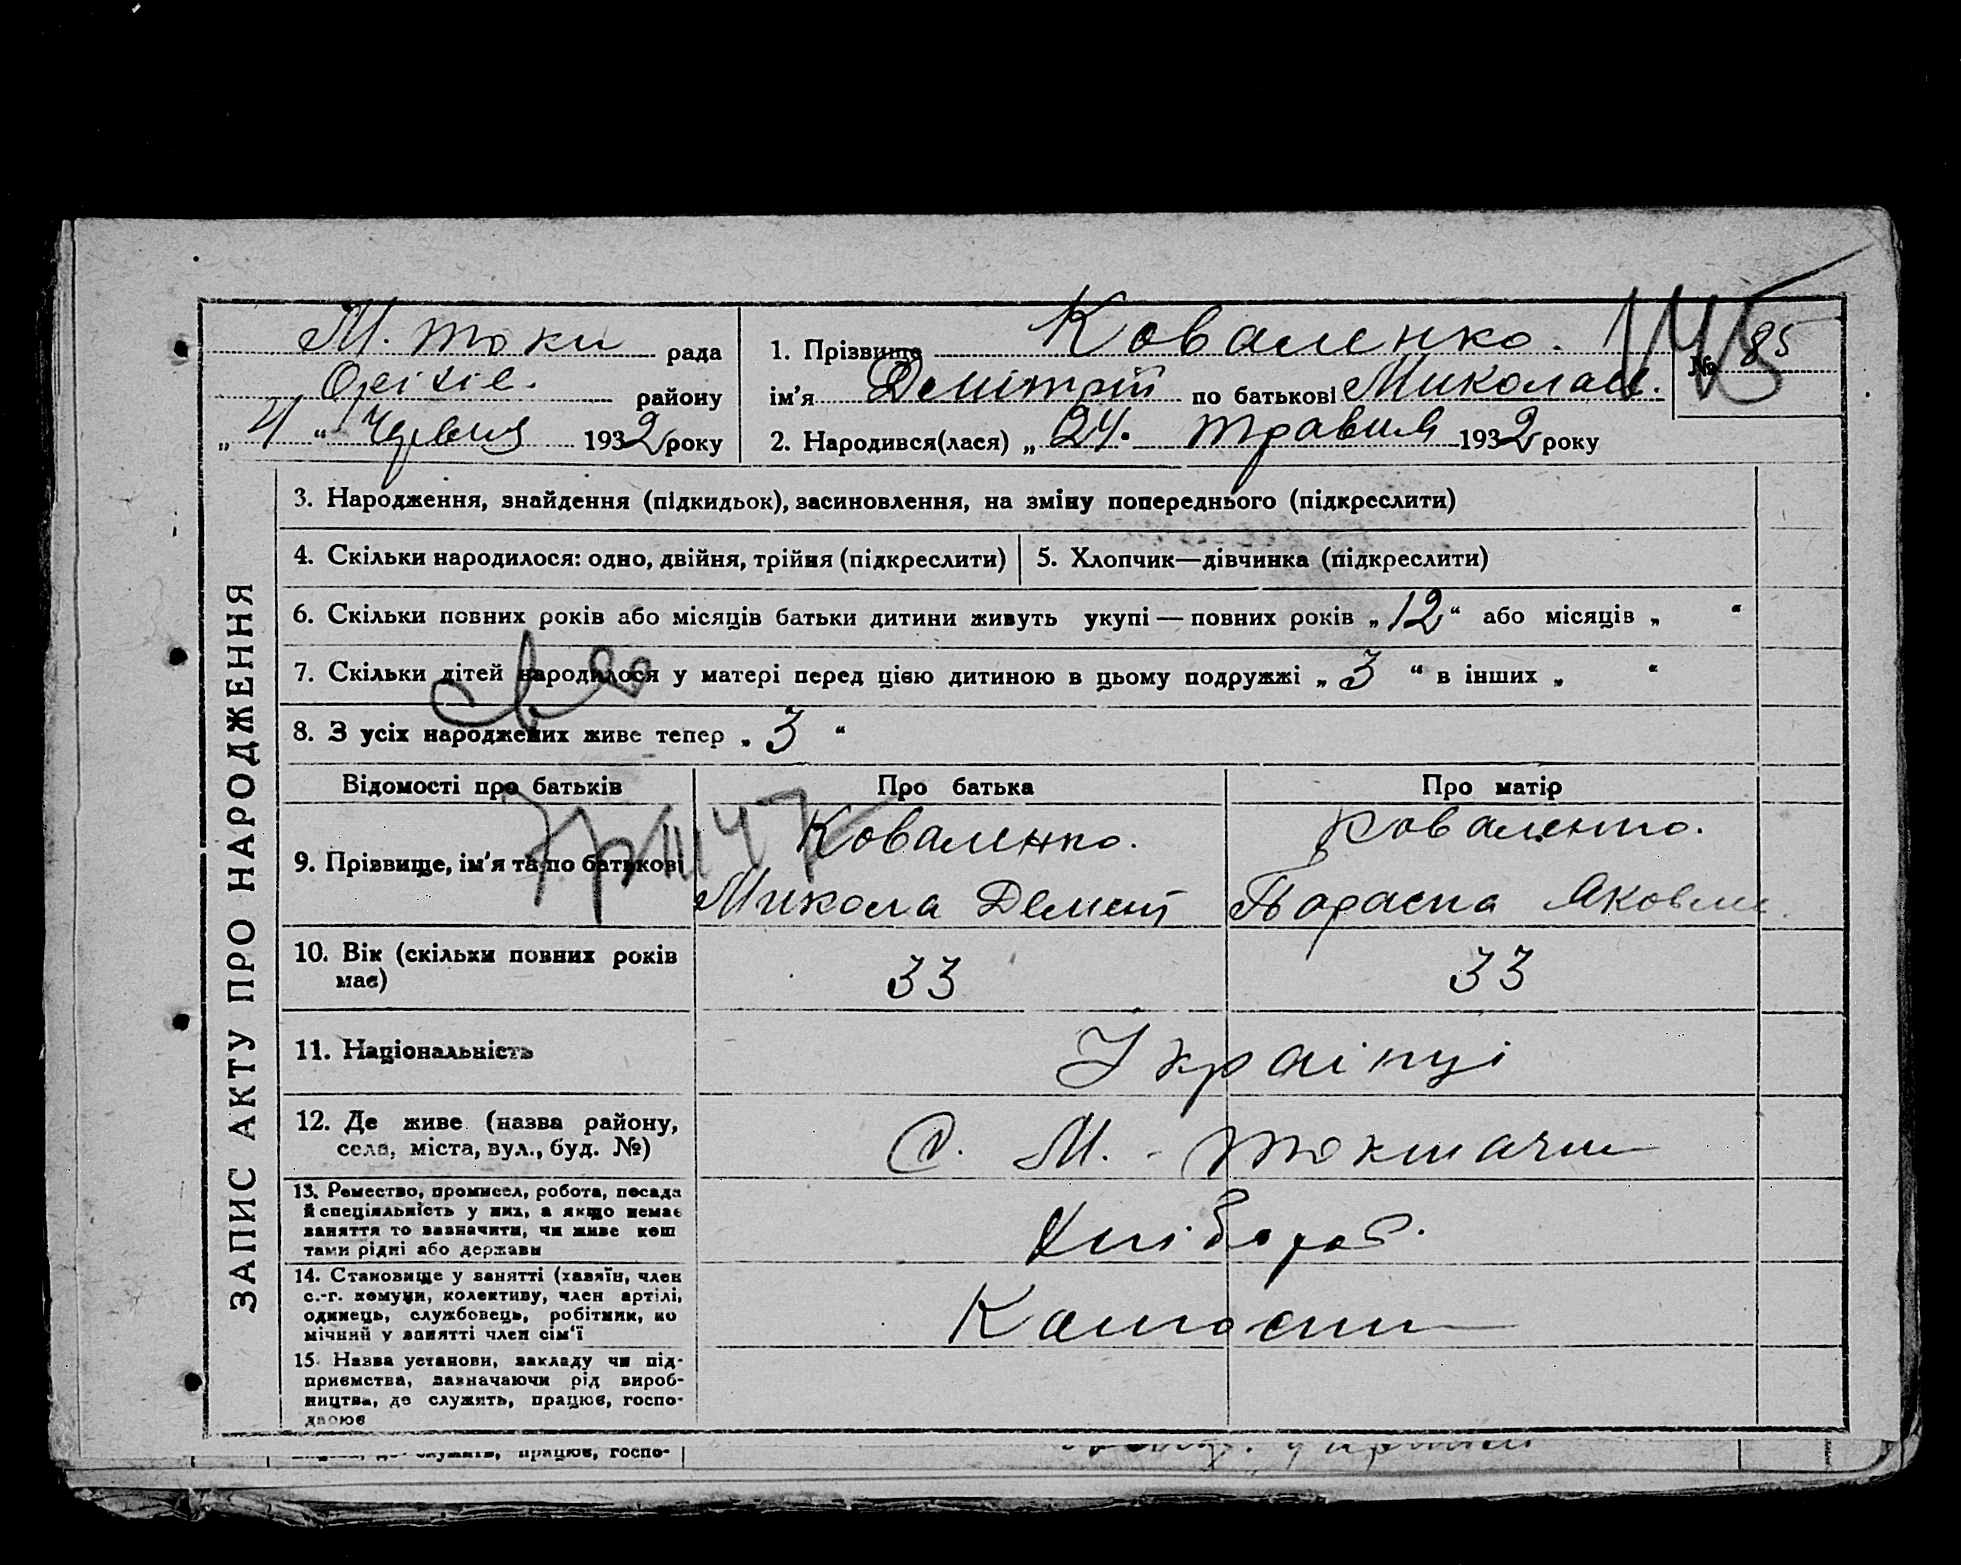 ЗАПИС АКТУ ПРО НАРОДЖЕННЯ
М. токи рада
Оріхів. району
„ 4 “ Червня 1932 року
1. Прізвище Коваленко.
№ 85
145
ім'я Демітрій по батькові Миколаєв.
2. Народився(лася) „ 24. травня 1932 року
3. Народження, знайдення (підкидьок), засиновлення, на зміну попереднього (підкреслити)
4. Скільки народилося: одно, двійня, трійня (підкреслити)
5. Хлопчик—дівчинка (підкреслити)
6. Скільки повних років або місяців батьки дитини живуть укупі — повних років „ 12 “ або місяців „ “
7. Скільки дітей народилося у матері перед цією дитиною в цьому подружжі „ 3 “ в інших „ “
8. З усіх народжених живе тепер „ 3 “
Відомості про батьків
Про батька
Про матір
9. Прізвище, ім'я та по батькові
Коваленко.
Микола Демент
Коваленко.
Параска Яковл
10. Вік (скільки повних років
має)
33
33
11. Національність
Українці
12. Де живе (назва району,
села, міста, вул., буд. №)
С. М. - токмачка
13. Ремество, промисел, робота, посада
й спеціяльність у них, а якщо немає
заняття то зазначити, чи живе кош
тами рідні або держави
Хлібороб.
14. Становище у занятті (хазяїн, член
с.-г. комуни, колективу, член артілі,
одинець, службовець, робітник, по
мічний у занятті член сім'ї
15. Назва установи, закладу чи під-
приємства, зазначаючи рід вироб-
ництва, де служить, працює, госпо-
дарює
служить, працює, госпо-